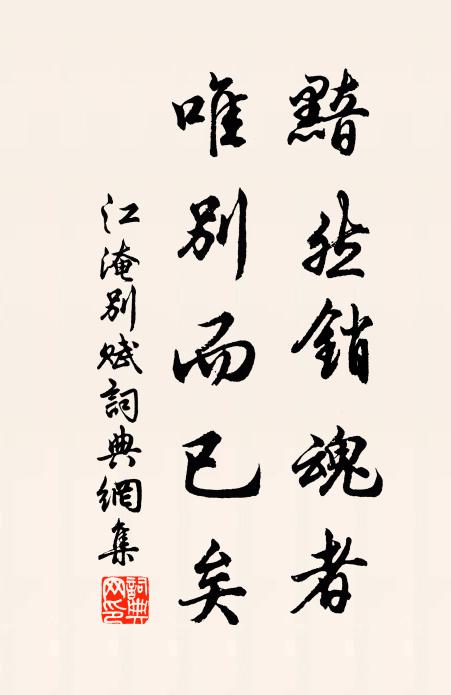 黯然銷魂者
唯別而已矣
江淹別賦詞典網集
詞典網印